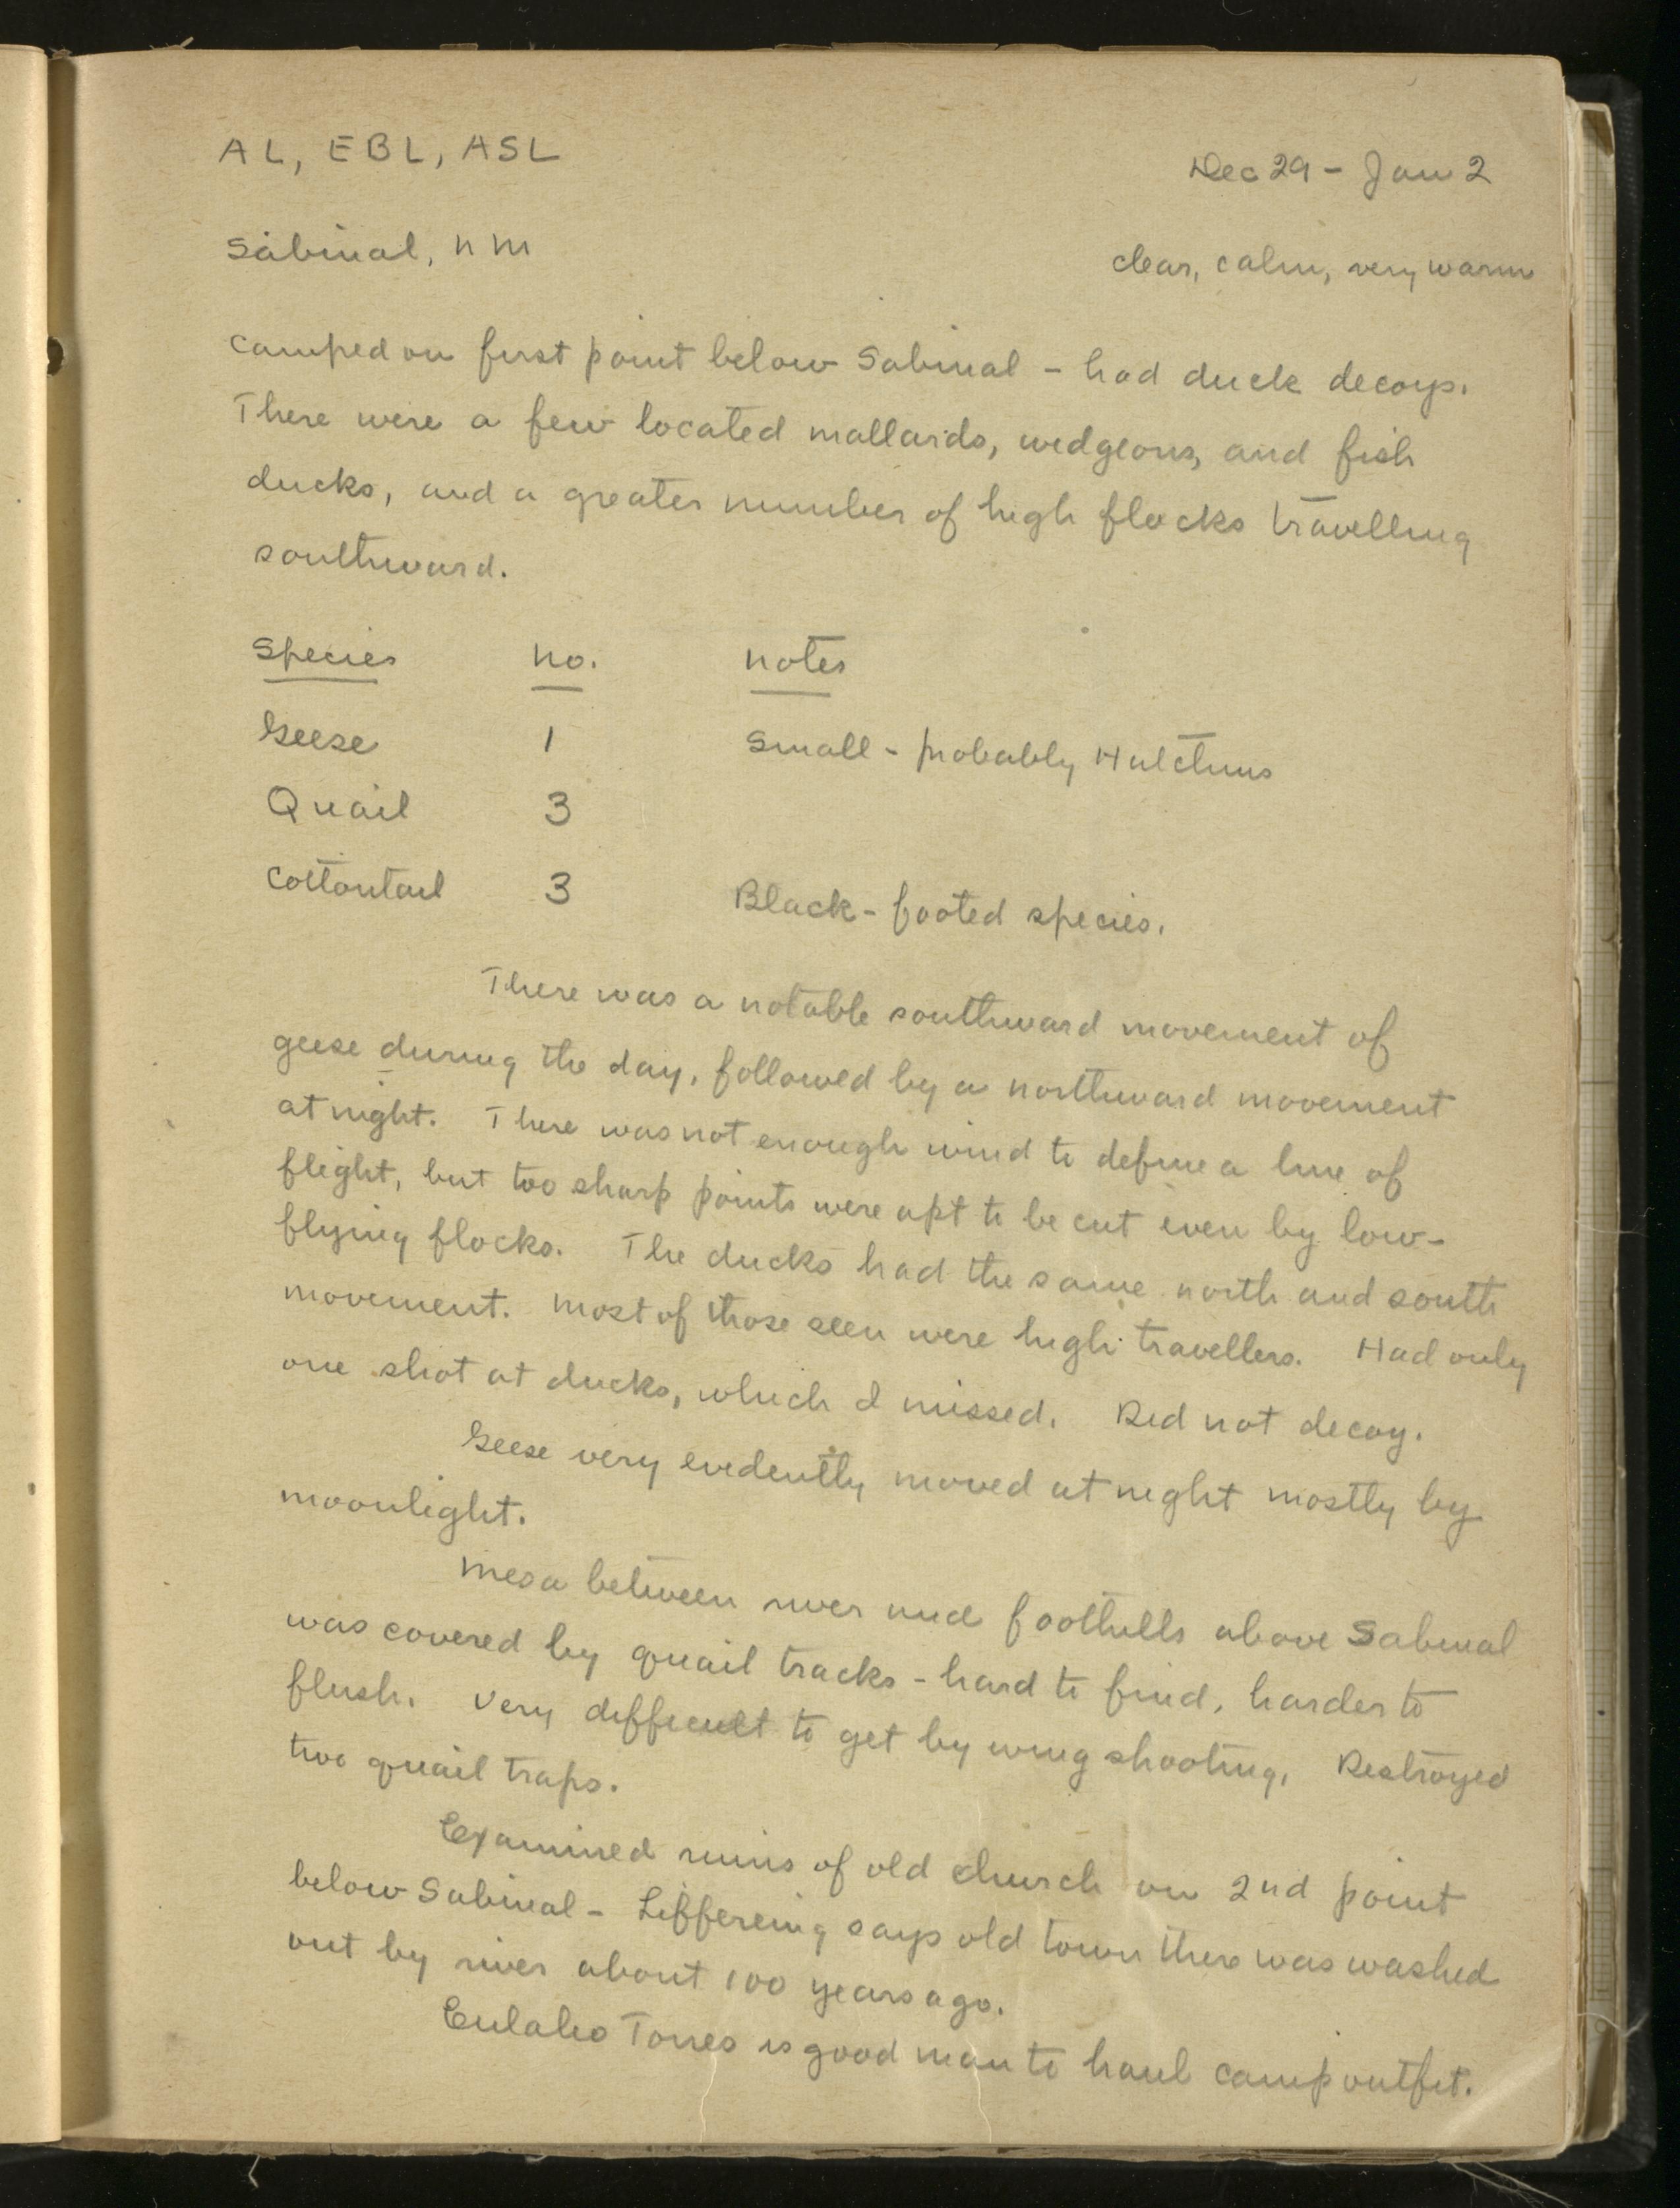 AL, EBL, ASL
Dec 29 - Jan 2
Sabinal, N M
clear, calm, very warm
Camped on first point below Sabinal - had duck decoys.
There were a few located mallards, widgeons, and fish
ducks, and a greater number of high flocks travelling
southward.
Species no. notes
Geese 1 Small - probably Hutchins
Quail 3
Cottontail 3 Black-footed species.
There was a notable southward movement of
geese during the day, followed by a northward movement
at night. There was not enough wind to define a line of
flight, but too sharp points were apt to be cut even by low-
flying flocks. The ducks had the same north and south
movement. Most of those seen were high travellers. Had only
one shot at ducks, which I missed. Did not decoy.
Geese very evidently moved at night mostly by
moonlight.
Mesa between river and foothills above Sabinal
was covered by quail tracks - hard to find, harder to
flush. Very difficult to get by wing shooting. Destroyed
two quail traps.
Examined ruins of old church on 2nd point
below Sabinal - says old town there was washed
out by river about 100 years ago.
Eulalio Torres is good man to haul camp outfit.